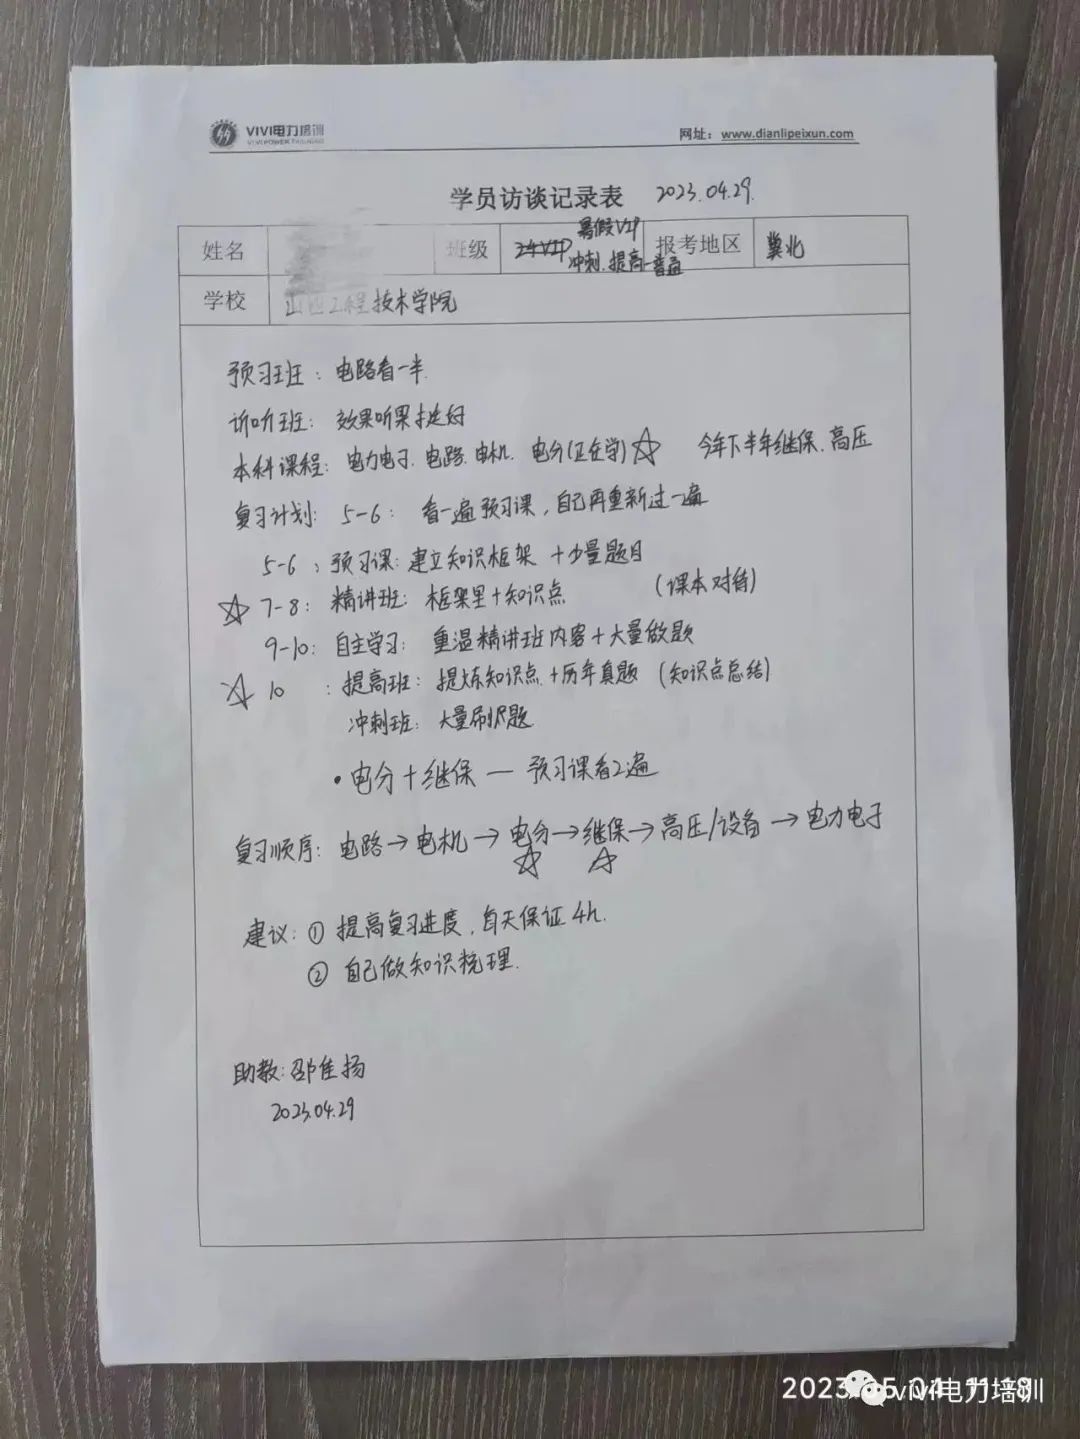 VIVI电力培训
VIVI POWER TRAINING
网址：www.dianlipeixun.com
学员访谈记录表 2023.04.29.
姓名 班级 24VIP 暑假VIP 报考地区 冀北
冲刺.提高-普通
学校 山西工程技术学院
预习班：电路看一半.
试听班：效果听果挺好
本科课程：电力电子.电路.电机. 电分(正在学)☆ 今年下半年继保.高压
复习计划：5-6：看一遍预习课，自己再重新过一遍
5-6：预习课：建立知识框架 +少量题目
☆7-8：精讲班：框架里+知识点 (课本对待)
9-10：自主学习：重温精讲班内容+大量做题
☆10：提高班：提炼知识点+历年真题 (知识点总结)
冲刺班：大量刷题
·电分+继保 — 预习课看2遍
复习顺序：电路→电机→电分→继保→高压/设备→电力电子
☆ ☆
建议：① 提高复习进度，每天保证4h.
② 自己做知识梳理.
助教：邵佳扬
2023.04.29
2023.05.04 11:18
vivi电力培训